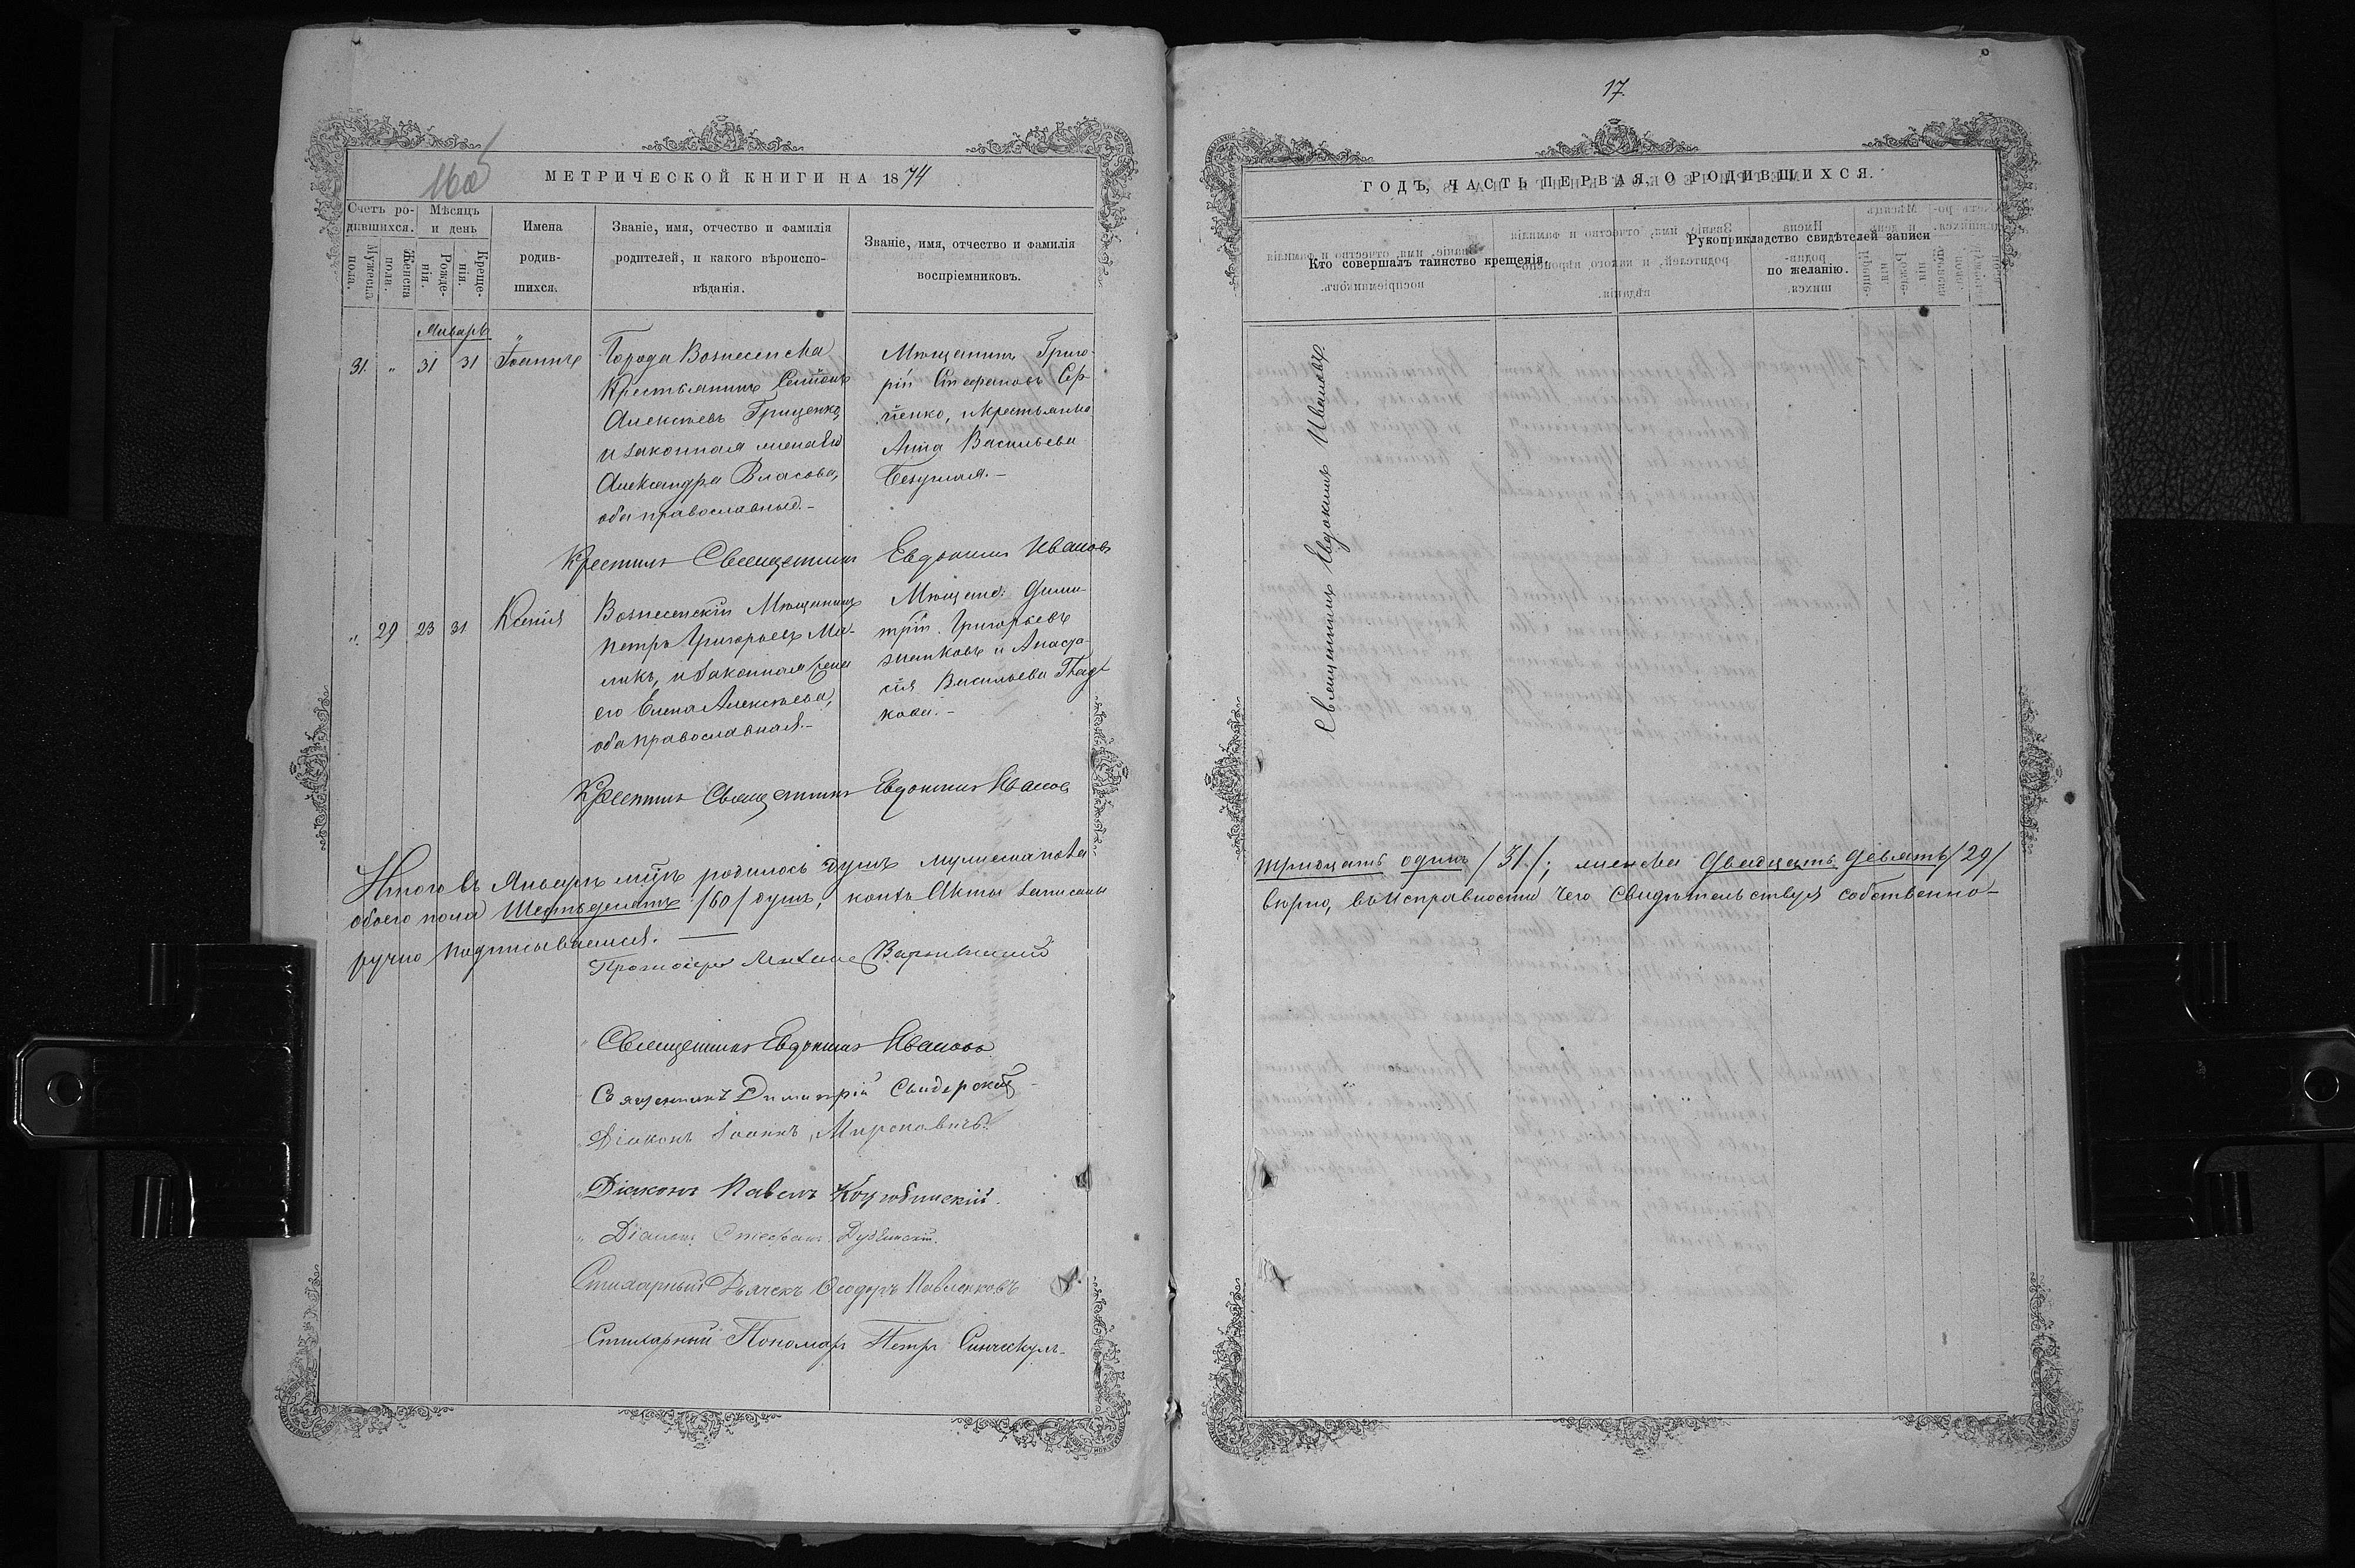 16об
МЕТРИЧЕСКОЙ КНИГИ НА 1874
Счетъ ро-
дившихся.
Мужеска
пола.
Женска
пола.
Мѣсяцъ
и день
Рожде-
нія.
Креще-
нія.
Имена
родив-
шихся.
Званіе, имя, отчество и фамилія
родителей, и какого вѣроиспо-
вѣданія.
Званіе, имя, отчество и фамилія
воспріемниковъ.
Январь
31. " 31 31 Іоаннъ
Города Вознесенска
Крестьянинъ Семіонъ
Алексѣевъ Гриценко,
и законная жена его
Александра Власова,
оба православные.-
Мѣщанинъ Григо-
рій Стефановъ Сер-
гіенко, и Крестьянка
Анна Васильева
Безумная.-
Крестилъ Священникъ Евдокимъ Ивановъ
" 29 23 31 Ксенія
Вознесенскій Мѣщанинъ
Петръ Григорьевъ Ма-
ликъ, и законная жена
его Елена Алексѣева,
оба православная.-
Мѣщане: Дими-
трій Григорьевъ
и Анаста-
сія Васильева
кова.-
Крестилъ Священникъ Евдокимъ Ивановъ
Итого въ Январѣ м-цѣ родилось душъ мужеска пола
обоего пола Шестьдесятъ /60/ душъ, коихъ Акты записаны
ручно подписываемся.
Протоіерей Михаилъ
Священникъ Евдокимъ Ивановъ
Священникъ Димитрій Свидерскій
Діаконъ Іоаннъ Мироновичъ.
Діаконъ Павелъ Коцюбинскій.
Діаконъ Стефанъ Дубинскій.
Стихарный Дьячекъ Ѳеодоръ Павленковъ
Стихарный Пономарь Петръ
17.
ГОДЪ, ЧАСТЬ ПЕРВАЯ, О РОДИВШИХСЯ.
Кто совершалъ таинство крещенія.
Рукоприкладство свидѣтелей записи
по желанію.
Священникъ Евдокимъ Ивановъ.
тридцать одинъ /31/; женска двадцать девять /29/
вѣрно, въ исправности чего свидѣтельствуя собственно-